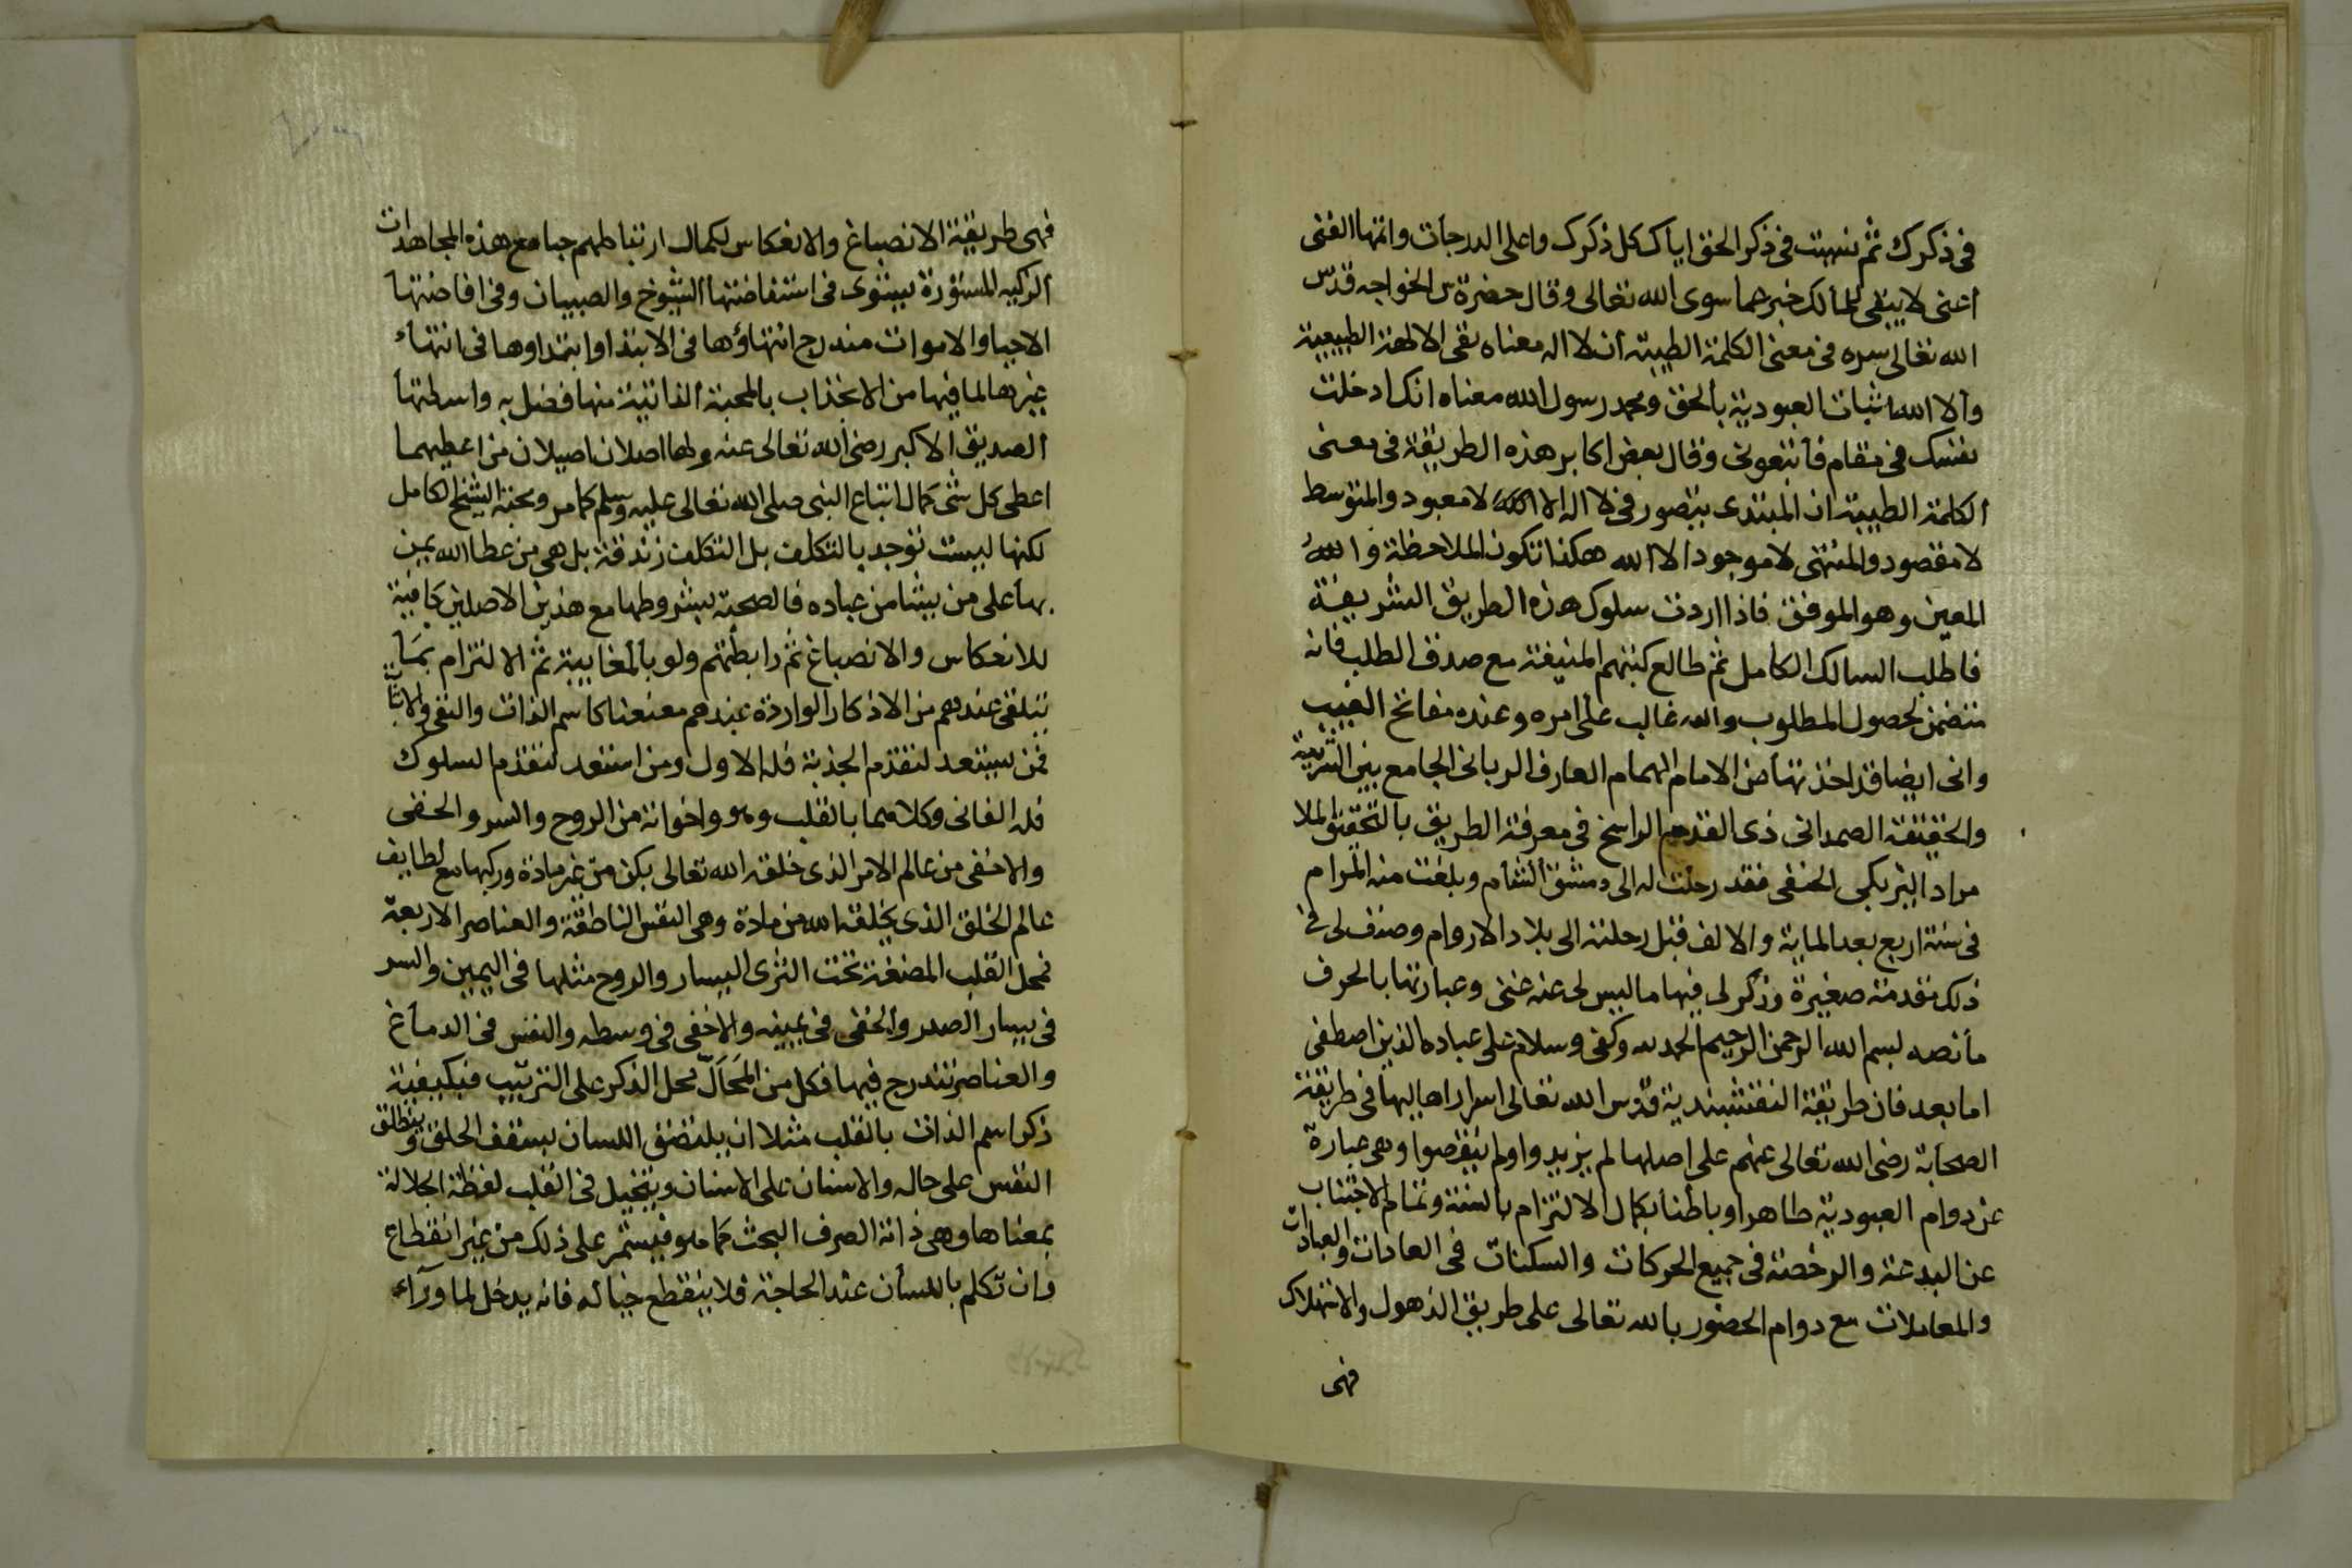 في ذكرك ثم نسيت في ذكر الحق اياك كل ذكرك واعلى الدرجات وانتها الفنى
اعنى لا يبقى للمالك خبر عما سوى الله تعالى وقال حضرة س الخواجه قدس
الله تعالى سره في معنى الكلمة الطيبة ان لا اله معناه نفى الالهة الطبيعية
والا الله اثبات العبودية بالحق ومحمد رسول الله معناه انك ادخلت
نفسك في مقام فاتبعونى وقال بعض اكابر هذه الطريقة في معنى
الكلمة الطيبة ان المبتدى يتصور في لا اله الا الله لا معبود والمتوسط
لا مقصود والمنتهى لا موجود الا الله هكذا تكون الملاحظة والله
المعين وهو الموفق فاذا اردت سلوك هذه الطريق الشريفة
فاطلب السالك الكامل ثم طالع كتبهم المنيفة مع صدق الطلب فانه
متضمن لحصول المطلوب والله غالب على امره وعنده مفاتح الغيب
وانى ايضا قد اخذتها من الامام الهمام العارف الربانى الجامع بين الشريعة
والحقيقة الصمدانى ذى القدم الراسخ في معرفة الطريق بالتحقيق الملا
مراد البزبكى الحنفى فقد رحلت له الى دمشق الشام وبلغت منه المرام
في سنة اربع بعد الماية والالف قبل رحلته الى بلاد الاروام وصنف لى في
ذلك مقدمة صغيرة وذكر لى فيها ما ليس لى عنه غنى وعبارتها بالحرف
ما نصه بسم الله الرحمن الرحيم الحمد لله وكفى وسلام على عباده الذين اصطفى
اما بعد فان طريقة النقشبندية قدس الله تعالى اسرار اهاليها في طريقة
الصحابة رضى الله تعالى عنهم على اصلها لم يزيدوا ولم ينقصوا وهى عبارة
عن دوام العبودية ظاهرا وباطنا بكمال الالتزام بالسنة وتمام الاجتناب
عن البدعة والرخصة في جميع الحركات والسكنات في العادات والعبادات
والمعاملات مع دوام الحضور بالله تعالى على طريق الذهول والاستهلاك
فهى
فهى طريقة الانصباغ والانعكاس لكمال ارتباطهم حبا مع هذه المجاهدات
الزكيه المستورة يستوى في استفاضتها الشيوخ والصبيان وفي افاضتها
الاحيا والاموات مندرج انتهاؤها في الابتدا وابتداوها في انتهاء
غيرها لما فيها من الانجذاب بالمحبة الذاتية منها فضل به واسطتها
الصديق الاكبر رضى الله تعالى عنه ولها اصلان اصيلان من اعطيهما
اعطى كل شئ كمال اتباع النبى صلى الله تعالى عليه وسلم كما مر ومحبة الشيخ الكامل
لكنها ليست توجد بالتكلف بل التكلف زندقة بل هى من عطا الله يمن
بها على من يشا من عباده فالصحبة بشروطها مع هذين الاصلين كافية
للانعكاس والانصباغ ثم رابطتهم ولو بالغايبة ثم الالتزام بما
يتلقى عندهم من الاذكار الواردة عندهم معنعنا كاسم الذات والنفى والاثبات
فمن يستعد لتقدم الجذبة فله الاول ومن استعد لتقدم السلوك
فله الثانى وكلاهما بالقلب وهو واخوانه من الروح والسر والخفى
والاخفى من عالم الامر الذى خلقه الله تعالى بكن من غير مادة وركبها مع لطايف
عالم الخلق الذى يخلقه الله من مادة وهى النفس الناطقة والعناصر الاربعة
فمحل القلب المضغة تحت الثدى اليسار والروح مثلها في اليمين والسر
في يسار الصدر والخفى في يمينه والاخفى في وسطه والنفس في الدماغ
والعناصر تندرج فيها فكل من المحال محل الذكر على الترتيب فبكيفية
ذكر اسم الذات بالقلب مثلا ان يلتصق اللسان بسقف الحلق وينطلق
النفس على حاله والاسنان على الاسنان ويتخيل في القلب لفظة الجلالة
بمعناها وهى ذاته الصرف البحث كما هو فيستمر على ذلك من غير انقطاع
وان تكلم باللسان عند الحاجة فلا ينقطع خياله فانه يدخل لما ورآء